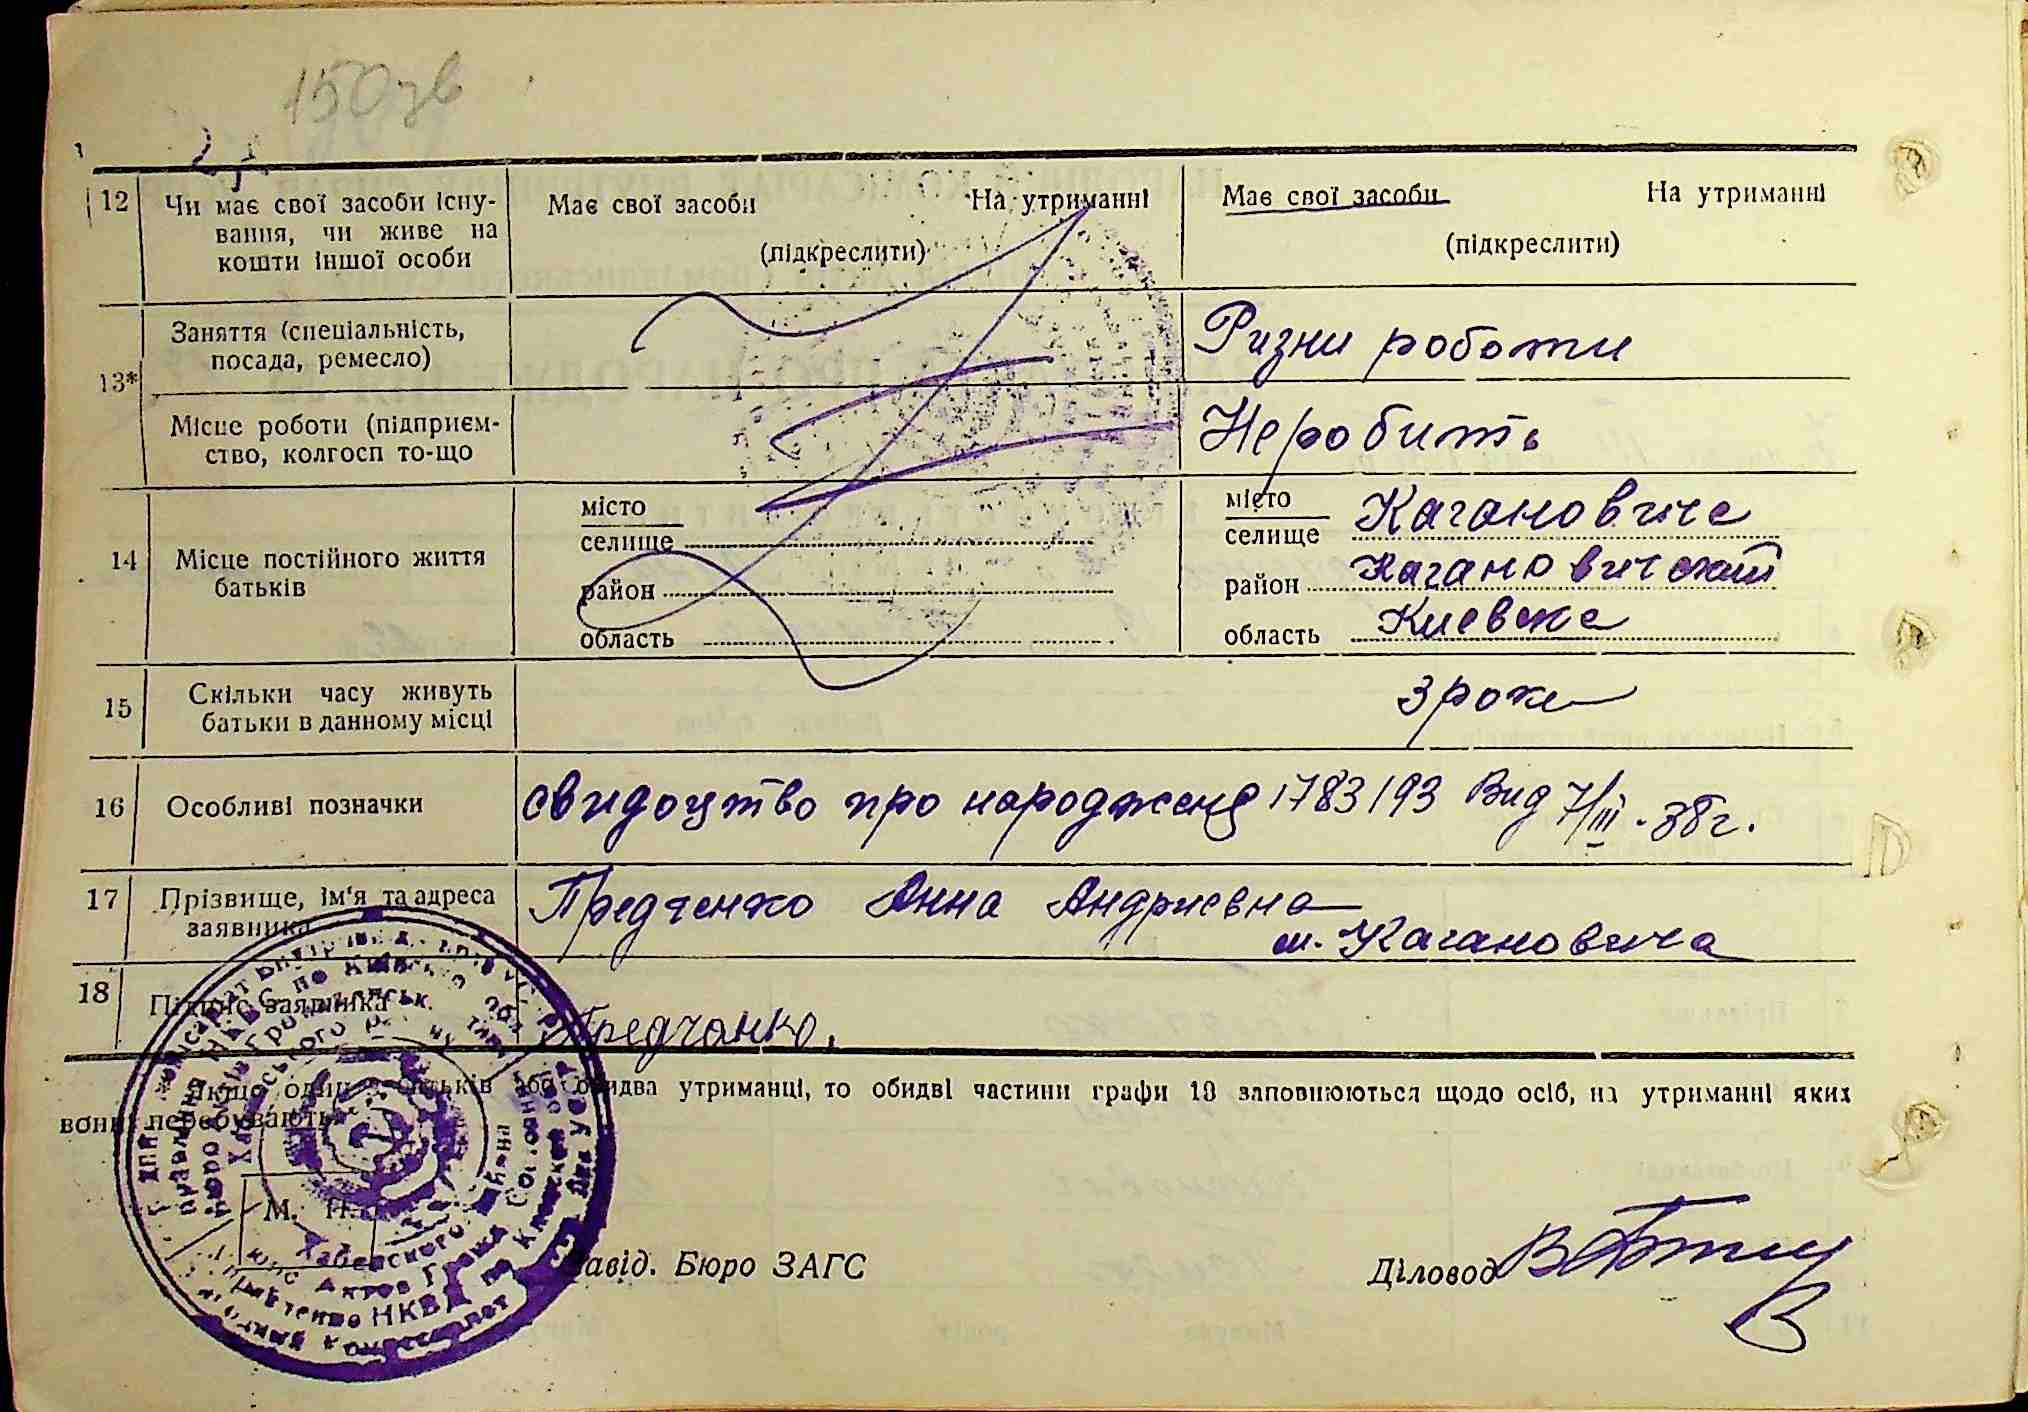 150зв
12
Чи має свої засоби існу-
вання, чи живе на
кошти іншої особи
Має свої засоби На утриманні
(підкреслити)
Має свої засоби На утриманні
(підкреслити)
13*
Заняття (спеціальність,
посада, ремесло)
Ризни роботи
Місце роботи (підприєм-
ство, колгосп то-що
Неробить
14
Місце постійного життя
батьків
місто
селище
район
область
місто
селище Кагановича
район Кагановичский
область Киевска
15
Скільки часу живуть
батьки в данному місці
3 роки
16
Особливі позначки
свидоцтво про народженя 1783193 Вид 7/III-38г.
17
Прізвище, ім'я та адреса
заявника
Предченко Анна Андриевна
м. Кагановича
18
Підпис заявника
Предчанко.
Якщо один з батьків або обидва утриманці, то обидві частини графи 13 заповнюються щодо осіб, на утриманні яких
вони перебувають.
М. П.
Завід. Бюро ЗАГС
Діловод